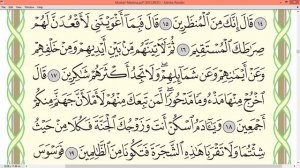 Adobe Reader
١٤ قَالَ إِنَّكَ مِنَ ٱلْمُنظَرِينَ ١٥ قَالَ فَبِمَآ أَغْوَيْتَنِى لَأَقْعُدَنَّ لَهُمْ
صِرَٰطَكَ ٱلْمُسْتَقِيمَ ١٦ ثُمَّ لَءَاتِيَنَّهُم مِّنۢ بَيْنِ أَيْدِيهِمْ وَمِنْ خَلْفِهِمْ
وَعَنْ أَيْمَٰنِهِمْ وَعَن شَمَآئِلِهِمْ وَلَا تَجِدُ أَكْثَرَهُمْ شَٰكِرِينَ ١٧ قَالَ
ٱخْرُجْ مِنْهَا مَذْءُومًا مَّدْحُورًا لَّمَن تَبِعَكَ مِنْهُمْ لَأَمْلَأَنَّ جَهَنَّمَ مِنكُمْ
أَجْمَعِينَ ١٨ وَيَٰٓـَٔادَمُ ٱسْكُنْ أَنتَ وَزَوْجُكَ ٱلْجَنَّةَ فَكُلَا مِنْ حَيْثُ
شِئْتُمَا وَلَا تَقْرَبَا هَٰذِهِ ٱلشَّجَرَةَ فَتَكُونَا مِنَ ٱلظَّٰلِمِينَ ١٩ فَوَسْوَسَ